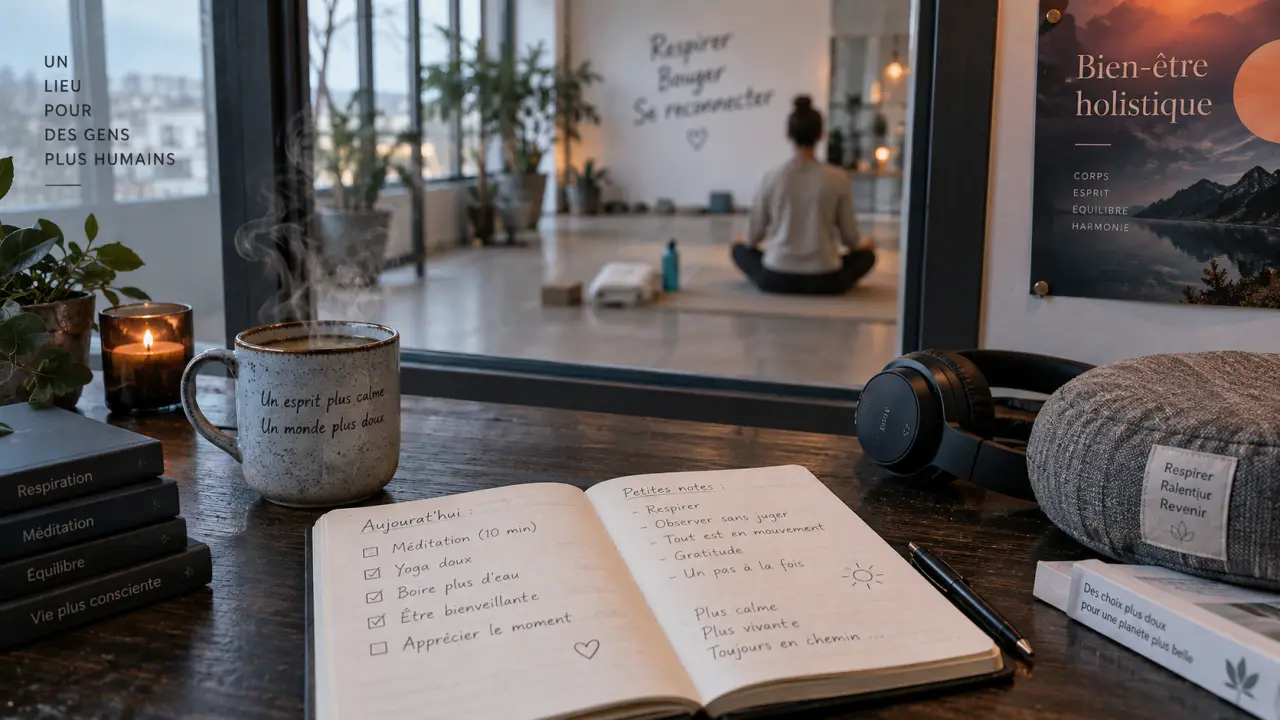 UN
LIEU
POUR
DES GENS
PLUS HUMAINS
Respirer
Bouger
Se reconnecter
Bien-être
holistique
CORPS
ESPRIT
ÉQUILIBRE
HARMONIE
Un esprit plus calme
Un monde plus doux
Respiration
Méditation
Équilibre
Vie plus consciente
Aujourd'hui :
Méditation (10 min)
Yoga doux
Boire plus d'eau
Être bienveillante
Apprécier le moment
Petites notes :
- Respirer
- Observer sans juger
- Tout est en mouvement
- Gratitude
- Un pas à la fois
Plus calme
Plus vivante
Toujours en chemin ...
Respirer
Ralentir
Revenir
Des choix plus doux
pour une planète plus belle